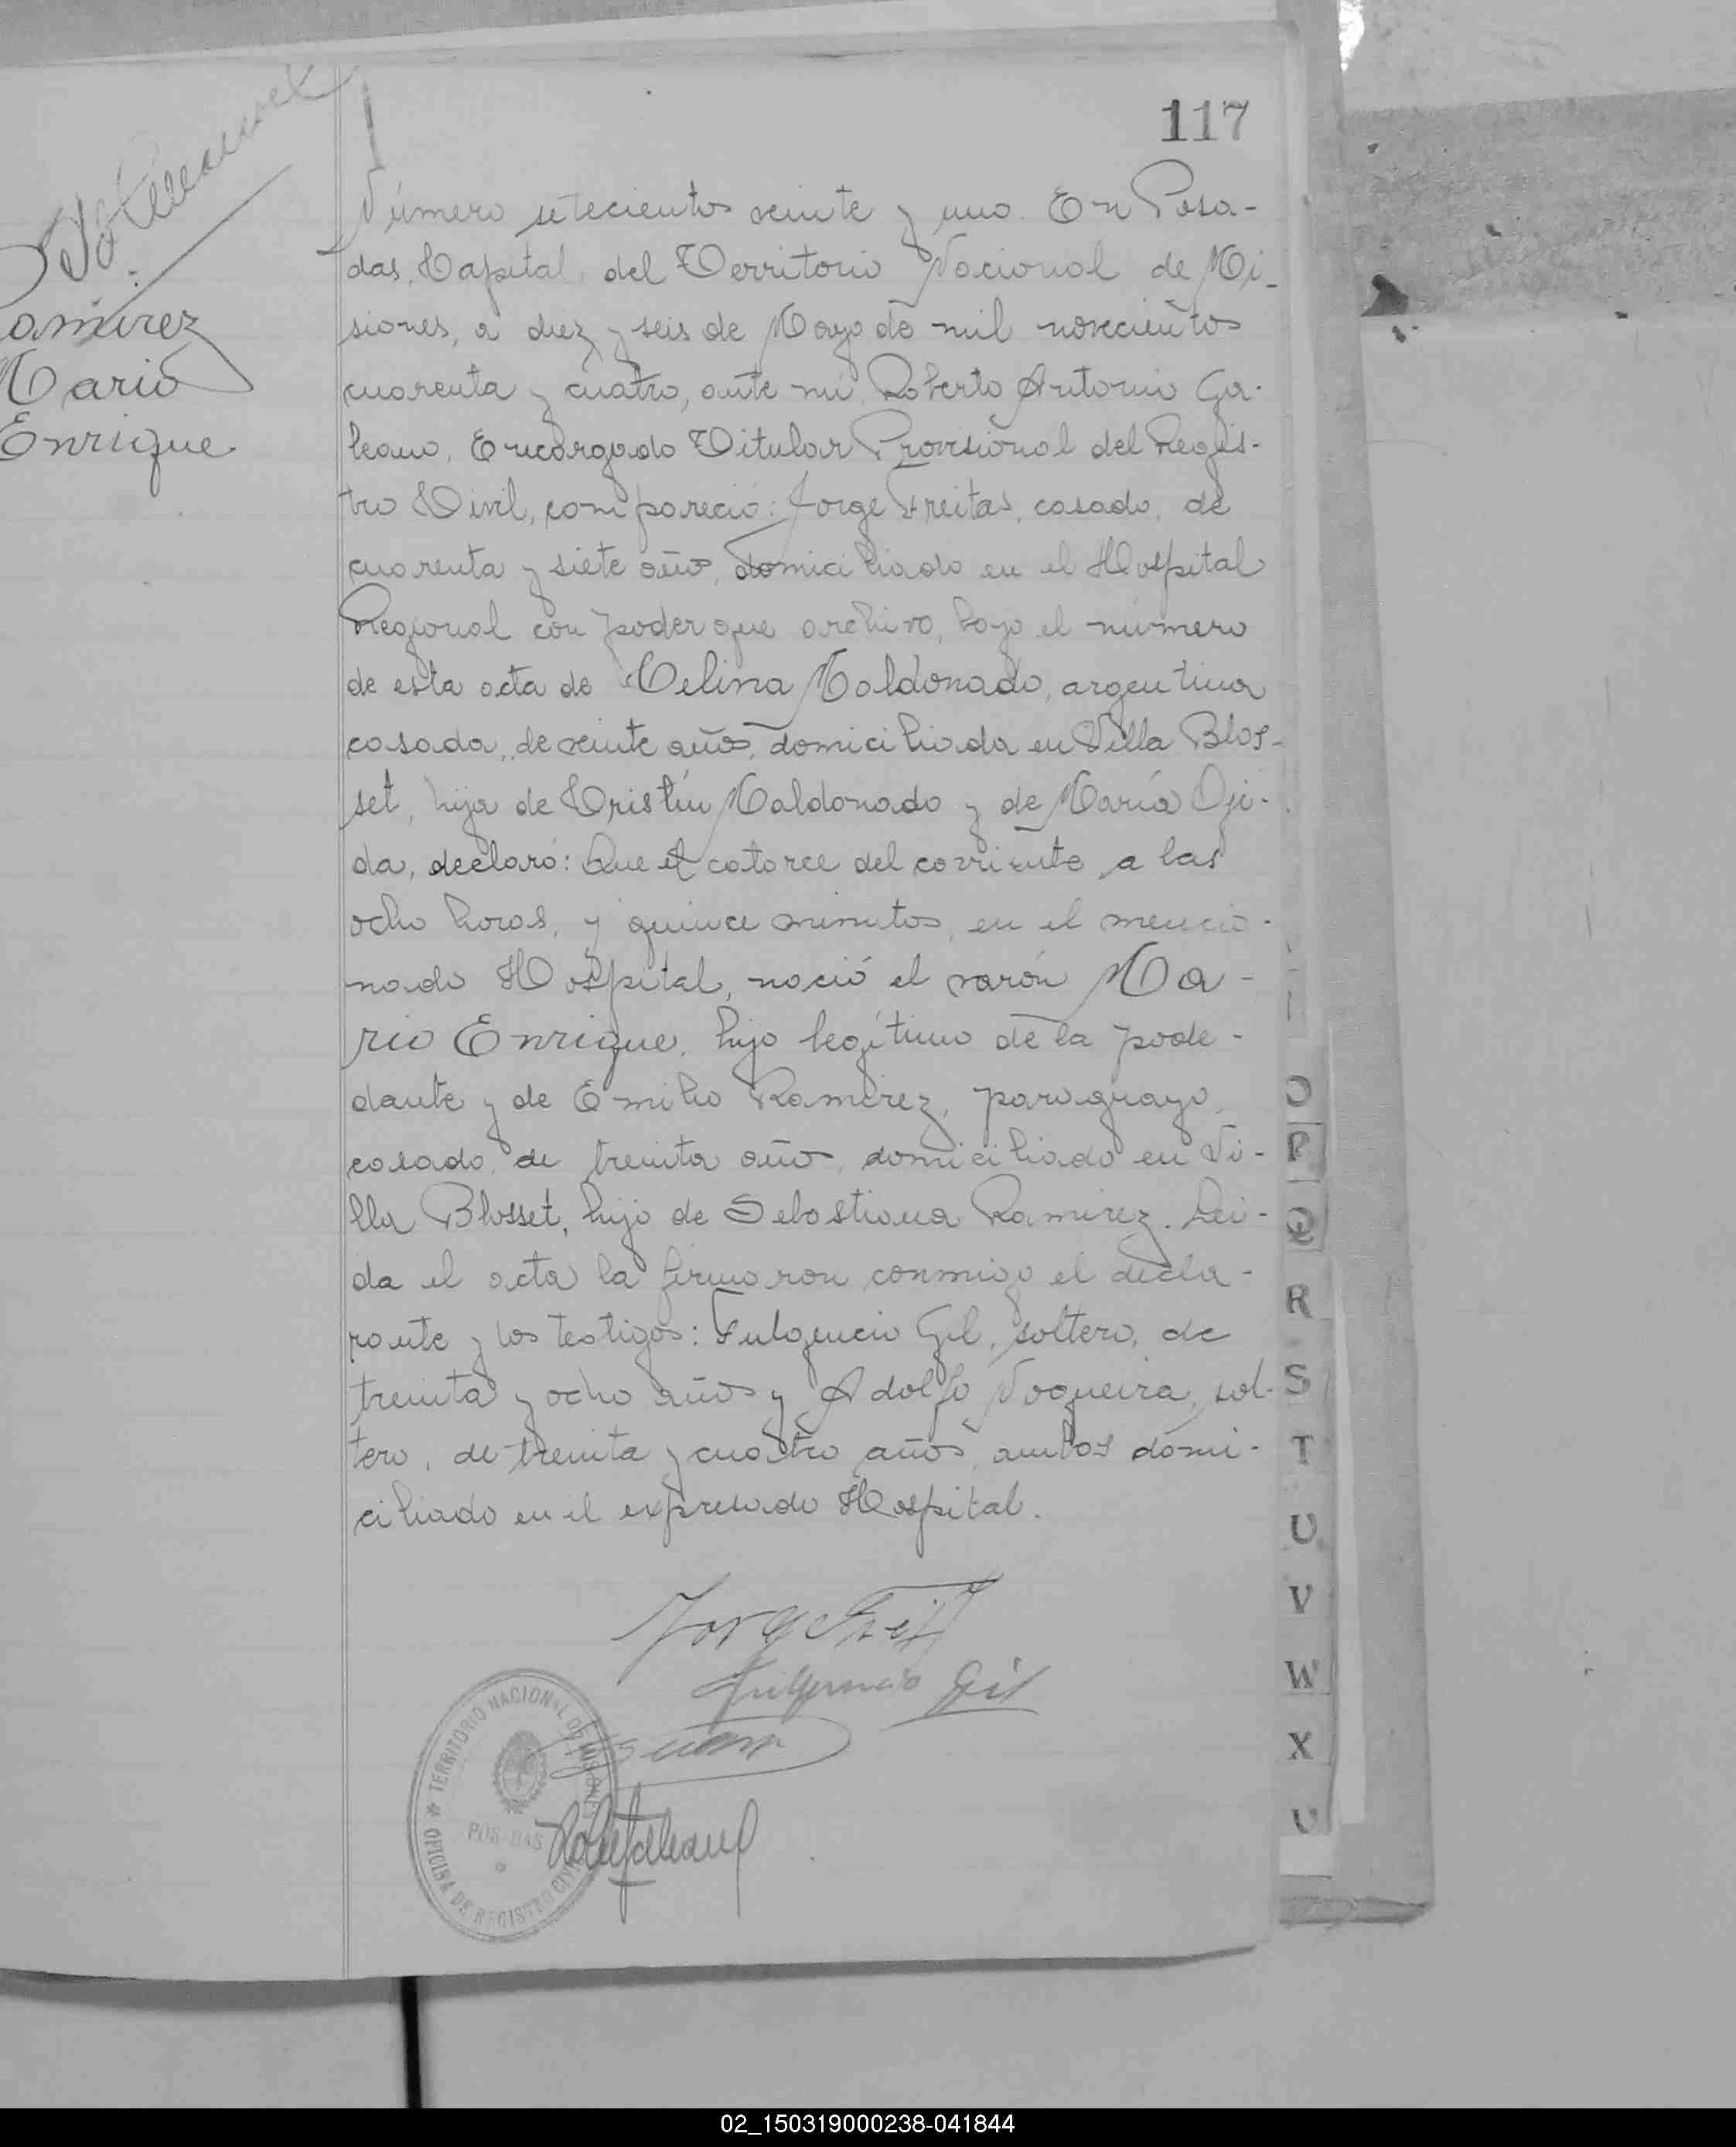 117
Ramirez
Mario
Enrique
Número setecientos veinte y uno. En Posa-
das, Capital, del Territorio Nacional de Mi-
siones, a diez y seis de Mayo de mil novecientos
cuarenta y cuatro, ante mi Roberto Antonio Ga-
leano, Encargado Titular Provisional del Regis-
tro Civil, compareció: Jorge Freitas, casado, de
cuarenta y siete años, domiciliado en el Hospital
Regional con poder que archivo, bajo el número
de esta acta de Celina Maldonado, argentina
casada, de veinte años, domiciliada en Villa Blos-
set, hija de Cristín Maldonado y de María Oje-
da, declaró: Que el catorce del corriente, a las
ocho horas, y quince minutos, en el mencio-
nado Hospital, nació el varón Ma-
rio Enrique, hijo legítimo de la pode-
dante y de Emilio Ramirez, paraguayo,
casado, de treinta años, domiciliado en Vi-
lla Blosset, hijo de Sebastiana Ramirez. Lei-
da el acta la firmaron conmigo el decla-
rante y los testigos: Fulgencio Gil, soltero, de
treinta y ocho años y Adolfo Nogueira, sol-
tero, de treinta y cuatro años, ambos domi-
ciliado en el expresado Hospital.
Jorge Freit
Fulgencio Gil
TERRITORIO NACIONAL DE MISIONES
POSADAS
OFICINA DE REGISTRO CIVIL
O
P
Q
R
S
T
U
V
W
X
02_150319000238-041844